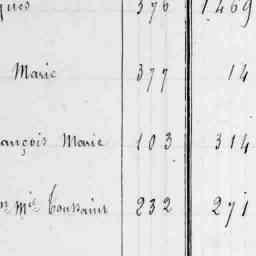 ques 376 1,469
Marie 377 14
ançois Marie 103 314
Mie Toussaint 232 271